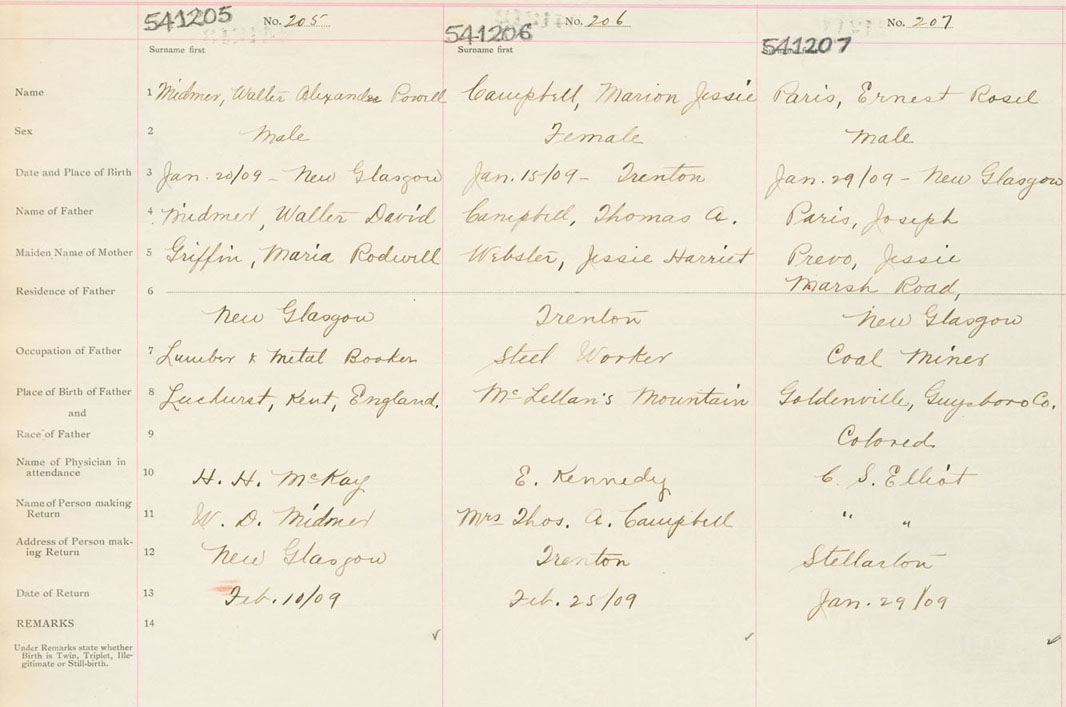 541205 No. 205 541206 No. 206 541207 No. 207
Surname first Surname first Surname first
Name 1 Midmer, Walter Alexander Powell Campbell, Marion Jessie Paris, Ernest Rosel
Sex 2 Male Female Male
Date and Place of Birth 3 Jan. 20/09 - New Glasgow Jan. 15/09 - Trenton Jan. 29/09 - New Glasgow
Name of Father 4 Midmer, Walter David Campbell, Thomas A. Paris, Joseph
Maiden Name of Mother 5 Griffin, Maria Rodwell Webster, Jessie Harriet Prevo, Jessie
Residence of Father 6 Marsh Road,
New Glasgow Trenton New Glasgow
Occupation of Father 7 Lumber & Metal Steel Worker Coal Miner
Place of Birth of Father 8 Kent, England. McLellan's Mountain Goldenville, Guysboro Co.
and
Race of Father 9 Colored
Name of Physician in
attendance 10 H. H. McKay E. Kennedy C. S. Elliot
Name of Person making
Return 11 W. D. Midmer Mrs Thos. A. Campbell " "
Address of Person mak-
ing Return 12 New Glasgow Trenton Stellarton
Date of Return 13 Feb. 10/09 Feb. 25/09 Jan. 29/09
REMARKS 14
Under Remarks state whether
Birth is Twin, Triplet, Ille-
gitimate or Still-birth.